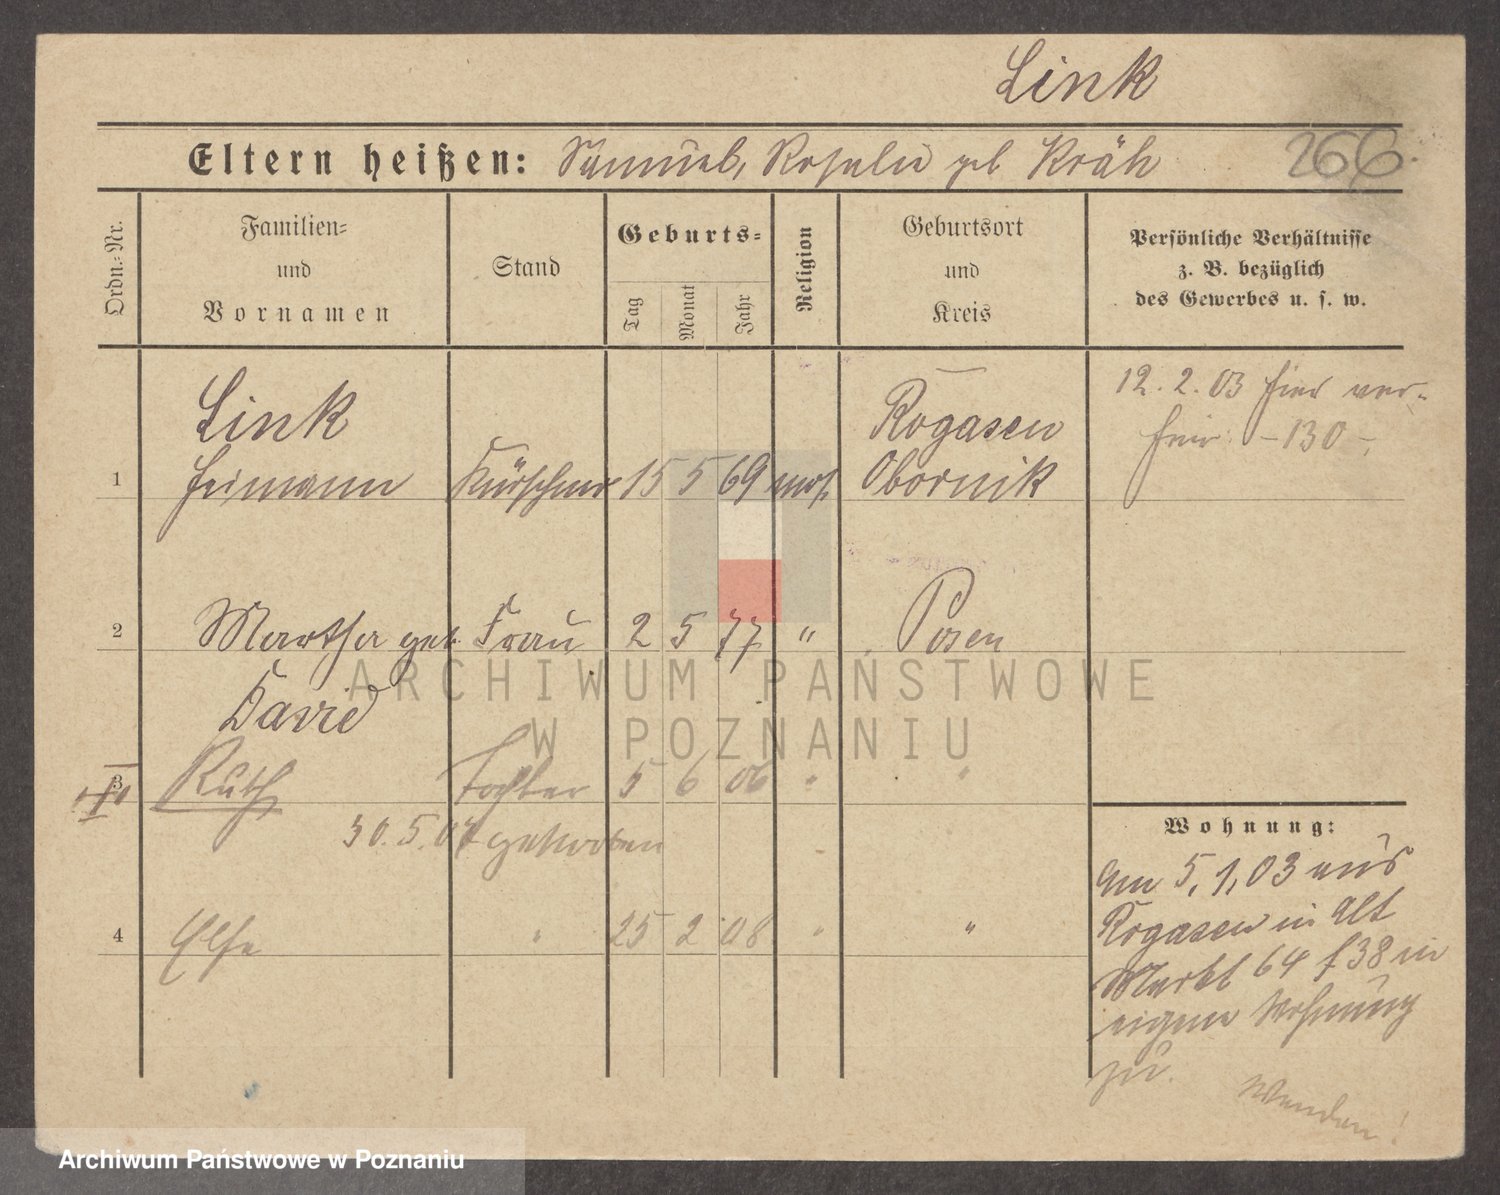 Link
Eltern heißen: Samuel, Rosalie geb Kräh
266.
Ordn.-Nr.
Familien-
und
Vornamen
Stand
Geburts-
Tag
Monat
Jahr
Religion
Geburtsort
und
Kreis
Persönliche Verhältnisse
z. B. bezüglich
des Gewerbes u. s. w.
Link
Heimann
1
Kürschner 15 5 69 mos.
Rogasen
Obornik
12.2.03 hier ver-
heir. -130-
2
Martha geb. Frau 2 5 77 " Posen
David
3
Ruth Tochter 5 6 06 " "
30.5.07 gestorben
4
Else " 25 2 08 " "
Wohnung:
Am 5,1,03 aus
Rogasen in Alt
Markt 64 f 38 in
eigene Wohnung
zu.
Wenden!
ARCHIWUM PAŃSTWOWE
W POZNANIU
Archiwum Państwowe w Poznaniu